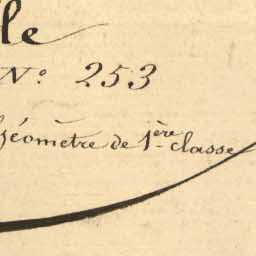 le
N° 253
Géomètre de 1ère classe